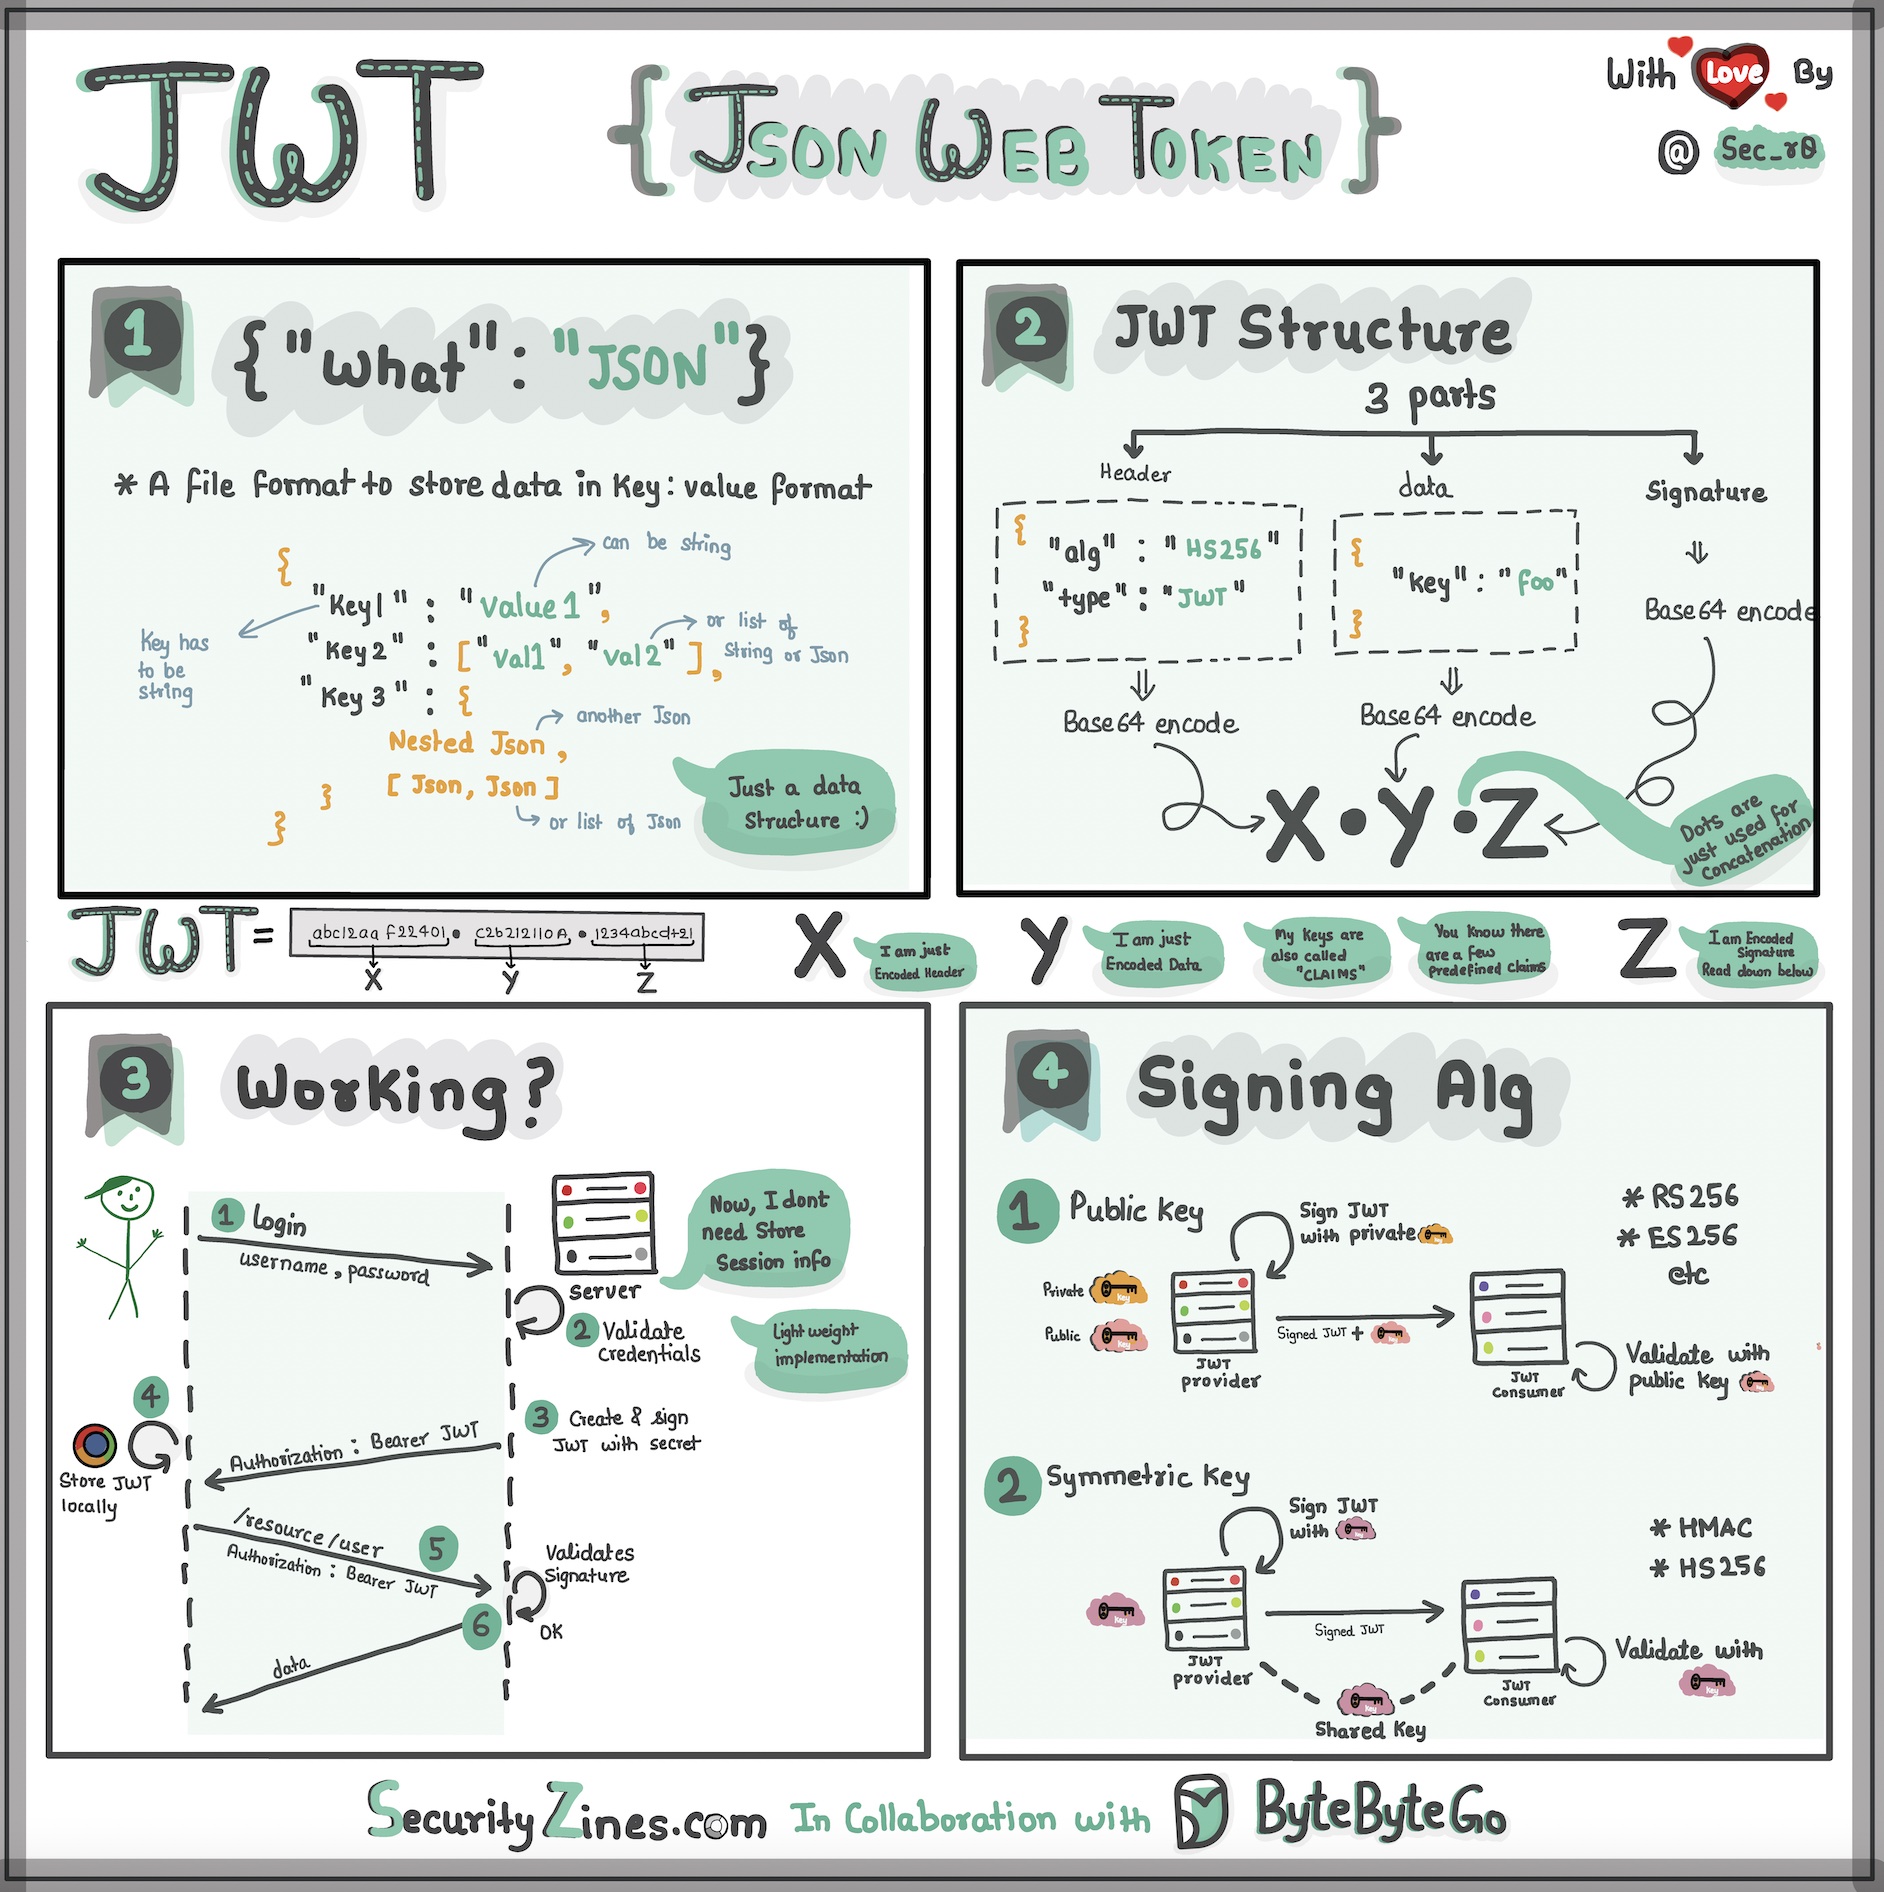 JWT
{ JSON WEB TOKEN }
With Love By
@ Sec_r0
1
{ "What" : "JSON" }
* A file format to store data in Key : value format
{
can be string
"Key1" : "value1",
Key has
to be
string
"Key2" : [ "val1", "val2" ],
or list of
String or Json
"Key 3" : {
another Json
Nested Json ,
[ Json, Json ]
or list of Json
}
}
Just a data
Structure :)
2
JWT Structure
3 parts
Header
{
"alg" : "HS256"
"type" : "JWT"
}
Base64 encode
data
{
"key" : "foo"
}
Base64 encode
Signature
Base64 encode
X . Y . Z
Dots are
just used for
Concatenation
JWT =
abc12aa f22401 . C2b212110A . 1234abcd+21
X
Y
Z
X
I am just
Encoded Header
Y
I am just
Encoded Data
My Keys are
also called
"CLAIMS"
You know there
are a Few
Predefined Claims
Z
I am Encoded
Signature
Read down below
3
Working?
1 login
username, password
Server
Now, I dont
need Store
Session info
2 Validate
Credentials
Light weight
implementation
3 Create & sign
JWT with secret
Authorization : Bearer JWT
4
Store JWT
locally
/resource/user
5
Authorization : Bearer JWT
Validates
Signature
OK
6
data
4
Signing Alg
1 Public Key
Sign JWT
with private key
* RS256
* ES256
etc
Private Key
Public Key
Signed JWT + Key
JWT
provider
JWT
Consumer
Validate with
public Key
2 Symmetric Key
Sign JWT
with Key
* HMAC
* HS256
Key
Signed JWT
JWT
provider
JWT
Consumer
Validate with
Key
Key
Shared Key
SecurityZines.com In Collaboration with ByteByteGo